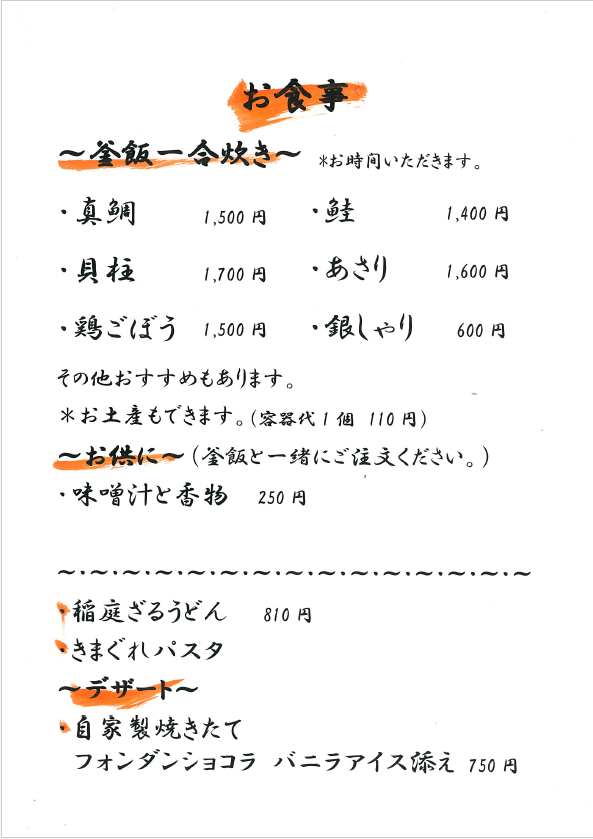 お食事
～釜飯一合炊き～ *お時間いただきます。
・真鯛 1,500 円 ・鮭 1,400 円
・貝柱 1,700 円 ・あさり 1,600 円
・鶏ごぼう 1,500 円 ・銀しゃり 600 円
その他おすすめもあります。
＊お土産もできます。（容器代1個 110円）
～お供に～（釜飯と一緒にご注文ください。）
・味噌汁と香物 250 円
～・～・～・～・～・～・～・～・～・～・～・～・～・～・～
・稲庭ざるうどん 810 円
・きまぐれパスタ
～デザート～
・自家製焼きたて
フォンダンショコラ バニラアイス添え 750 円